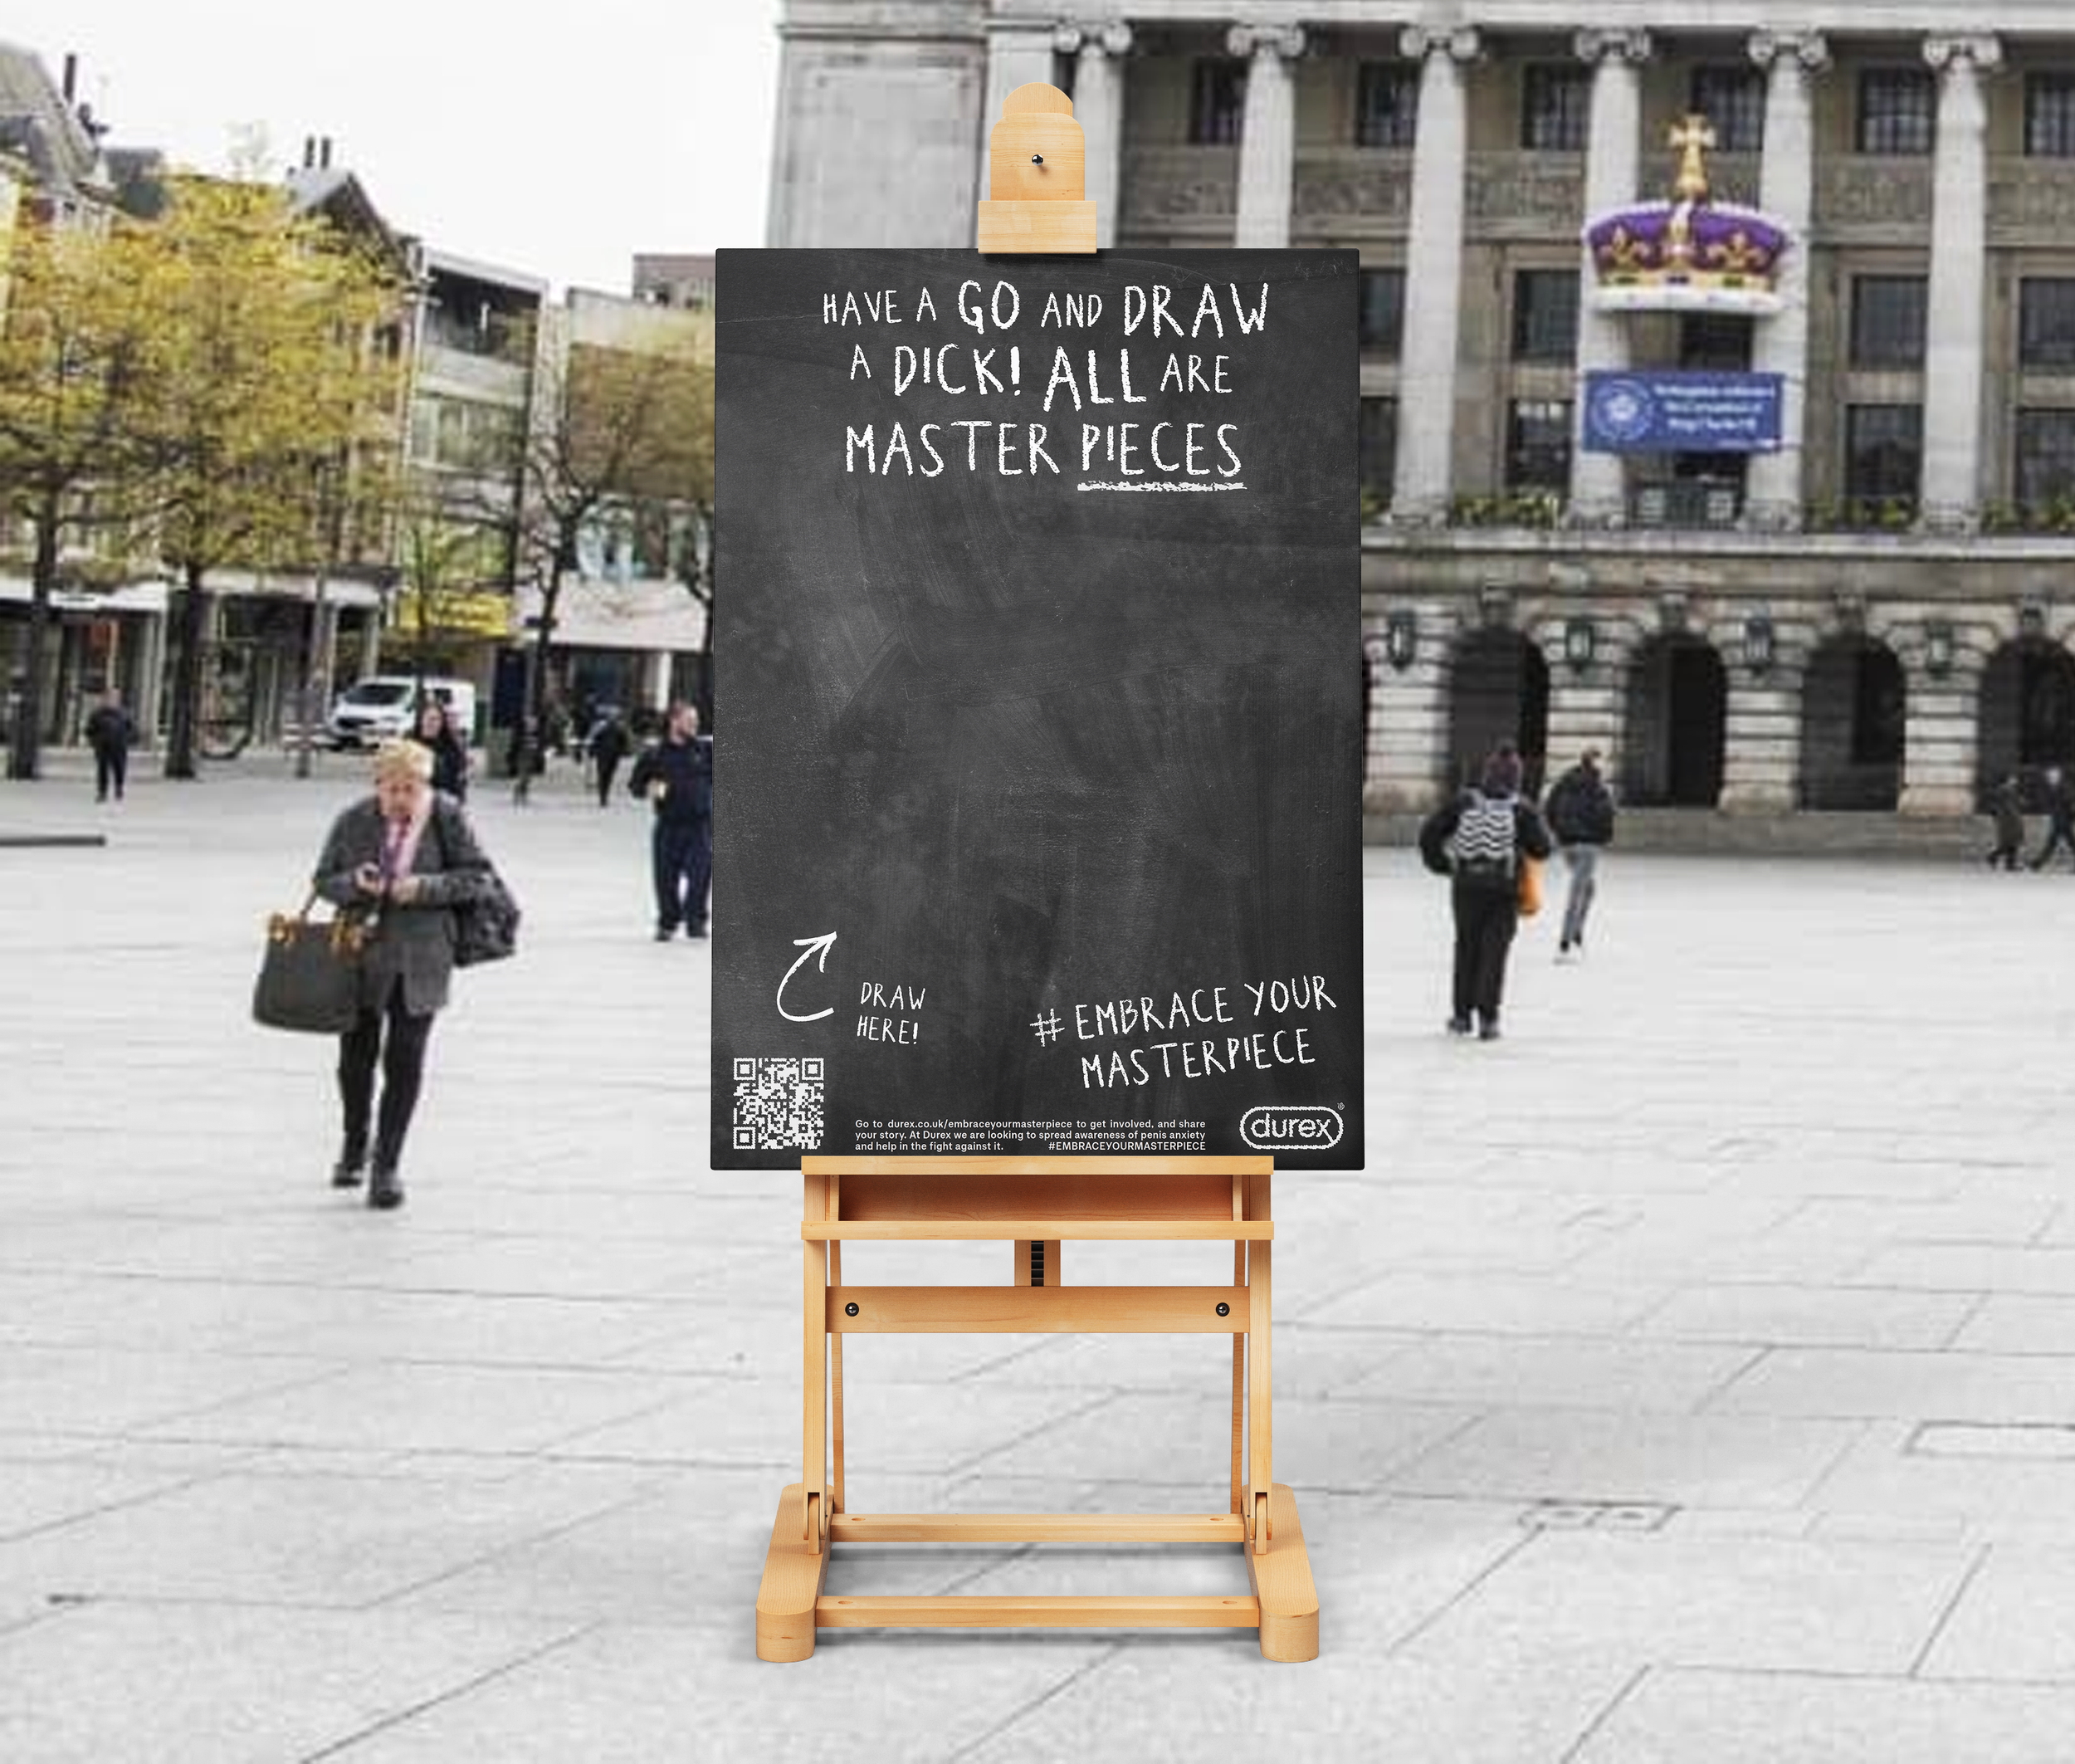 HAVE A GO AND DRAW
A DICK! ALL ARE
MASTER PIECES
DRAW
HERE!
# EMBRACE YOUR
MASTERPIECE
Go to durex.co.uk/embraceyourmasterpiece to get involved, and share
your story. At Durex we are looking to spread awareness of penis anxiety
and help in the fight against it. #EMBRACEYOURMASTERPIECE
durex®